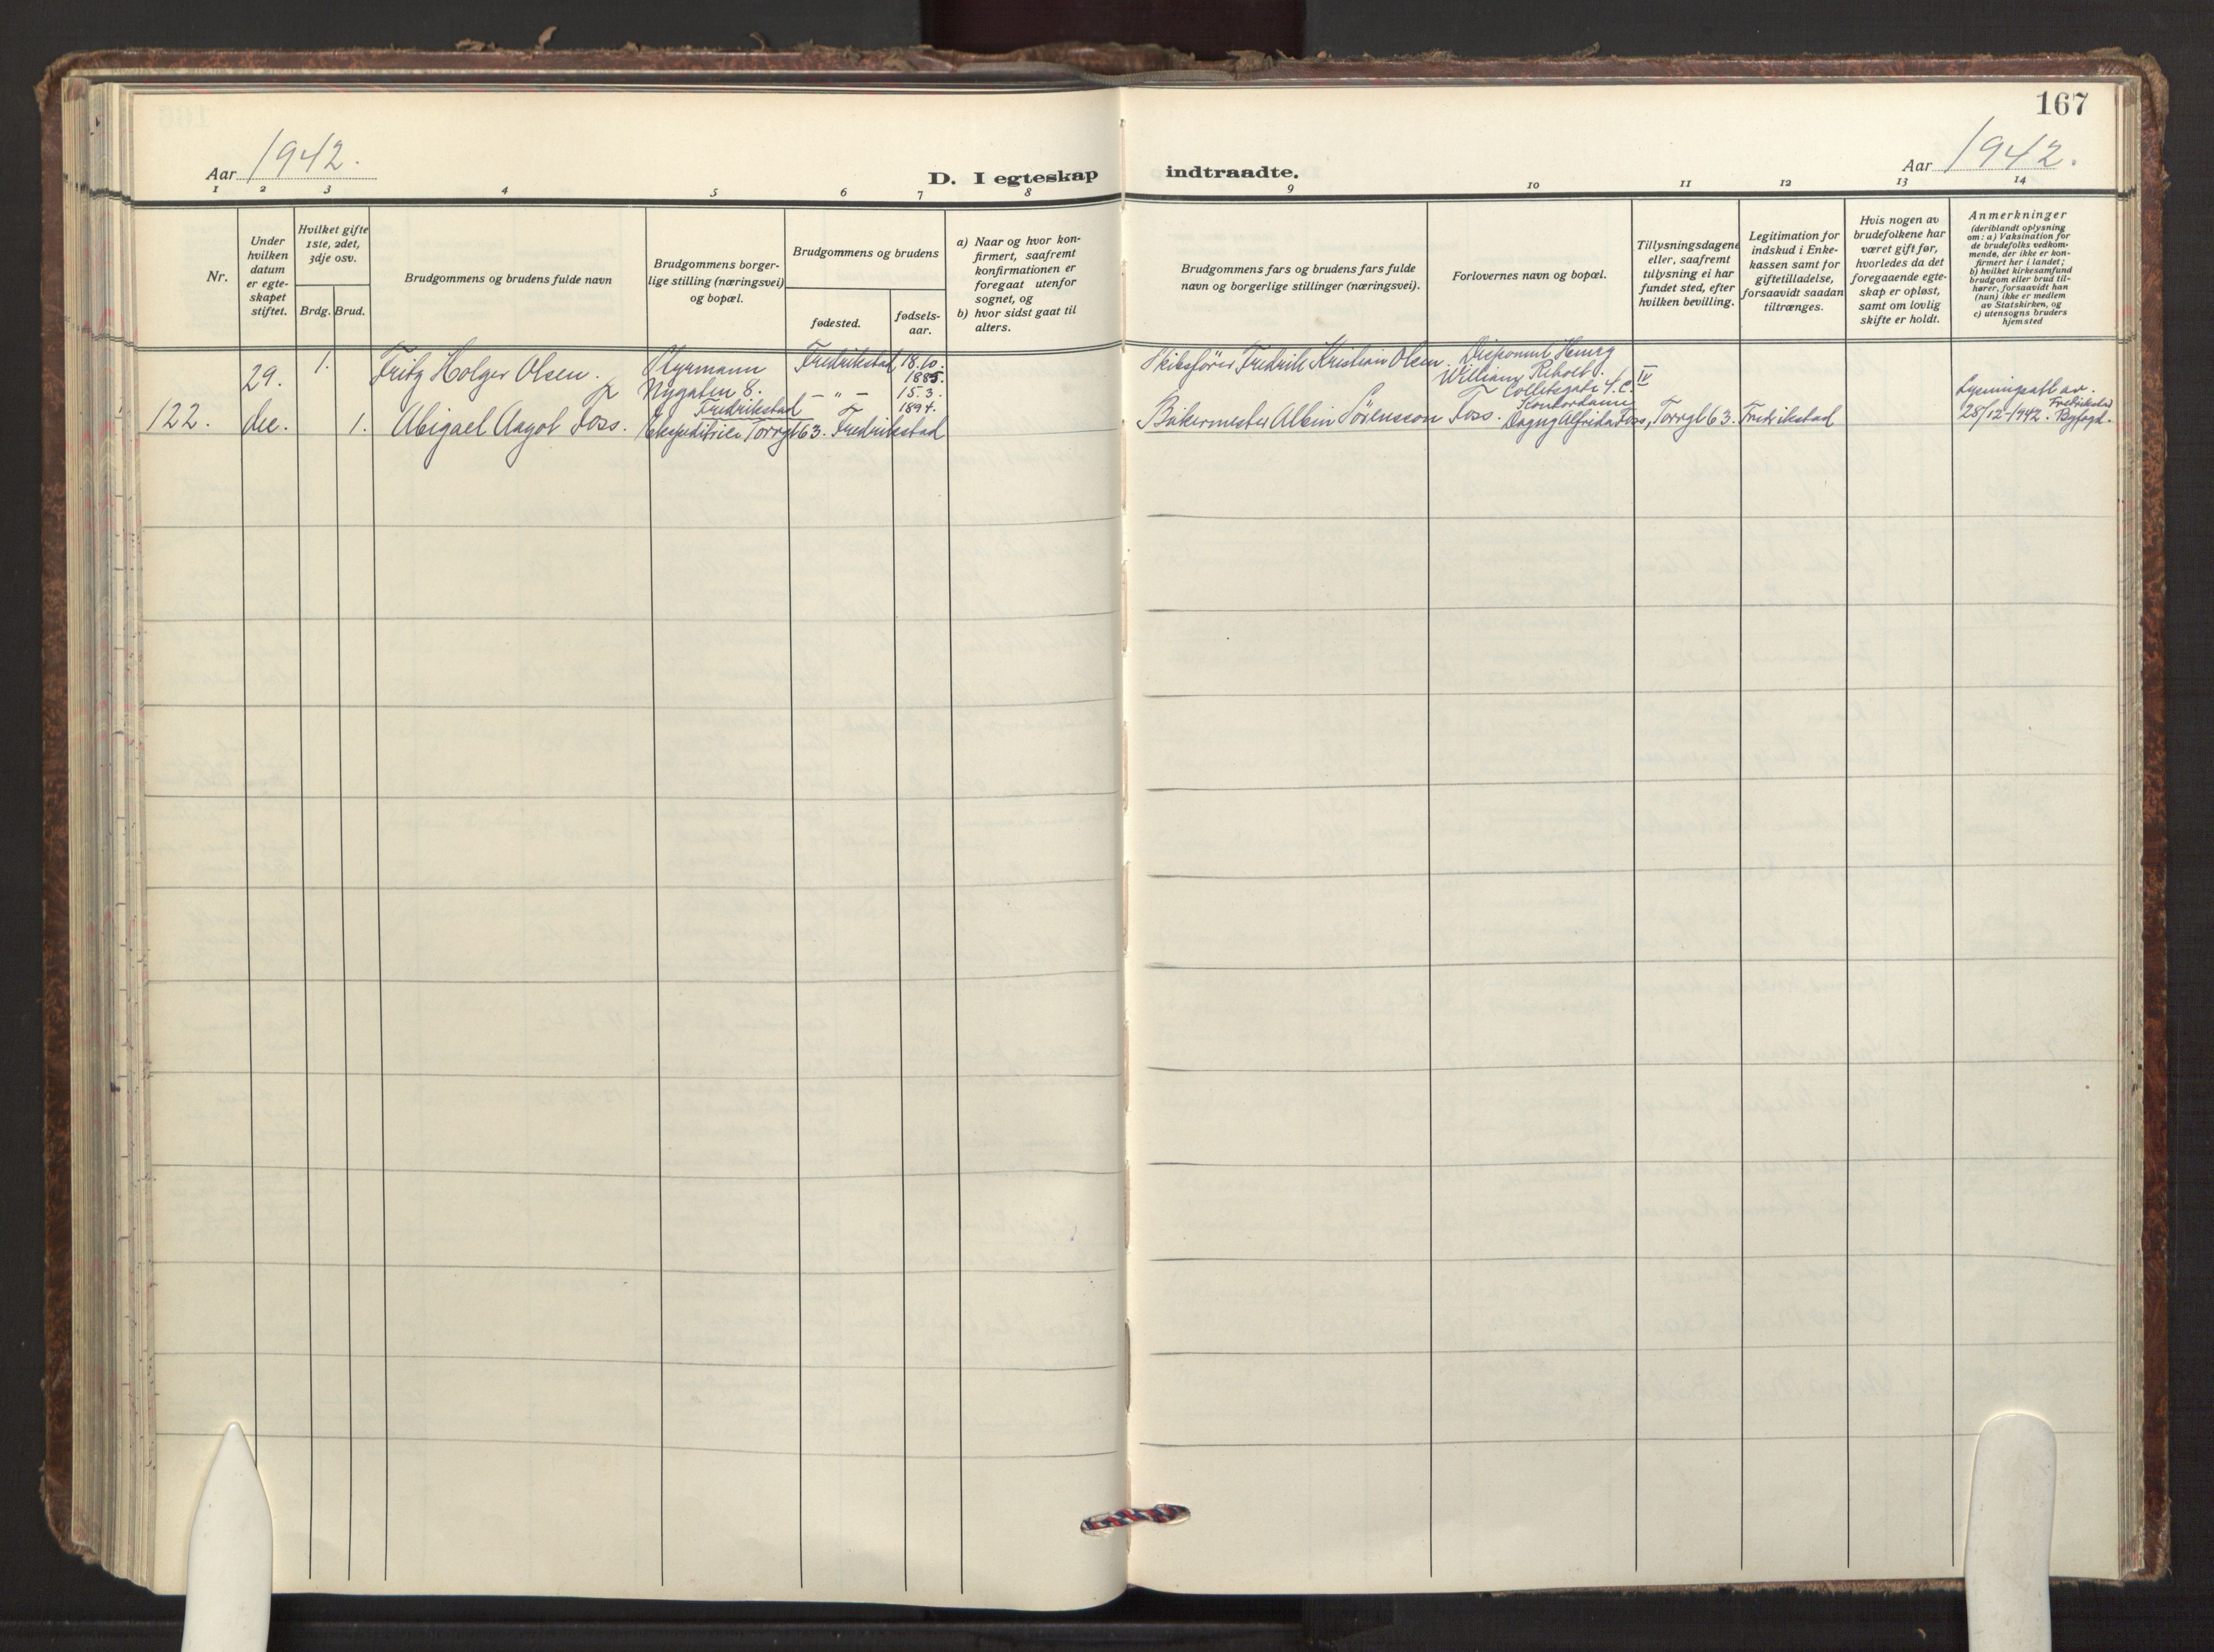 167
Aar 1942.
D. I egteskap indtraadte.
Aar 1942.
1 2 3 4 5 6 7 8 9 10 11 12 13 14
Nr.
Under hvilken datum er egte-skapet stiftet.
Hvilket gifte 1ste, 2det, 3dje osv.
Brdg. Brud.
Brudgommens og brudens fulde navn
Brudgommens borger-
lige stilling (næringsvei)
og bopæl.
Brudgommens og brudens
fødested.
fødsels-
aar.
a) Naar og hvor kon-
firmert, saafremt
konfirmationen er
foregaat utenfor
sognet, og
b) hvor sidst gaat til
alters.
Brudgommens fars og brudens fars fulde
navn og borgerlige stillinger (næringsvei).
Forlovernes navn og bopæl.
Tillysningsdagene
eller, saafremt
tillysning ei har
fundet sted, efter
hvilken bevilling.
Legitimation for
indskud i Enke-
kassen samt for
giftetilladelse,
forsaavidt saadan
tiltrænges.
Hvis nogen av
brudefolkene har
været gift før,
hvorledes da det
foregaaende egte-
skap er opløst,
samt om lovlig
skifte er holdt.
Anmerkninger
(deriblandt oplysning
om: a) Vaksination for
de brudefolks vedkom-
mende, der ikke er kon-
firmert her i landet;
b) hvilket kirkesamfund
brudgom eller brud til-
hører, forsaavidt han
(hun) ikke er medlem
av Statskirken, og
c) utensogns bruders
hjemsted
122.
29.
dec.
1.
Fritz Holger Olsen.
Styrmann
Nygaten 8.
Fredrikstad
Fredrikstad
18.10.
1885.
Skibsfører Fredrik Kristian Olsen.
Disponent Henry
William Reholt.
Colletsgate 4.c. IV
1.
Abigael Aagot Foss.
Ekspeditrice Torvgt 63. Fredrikstad
- " -
15.3.
1894.
Bakermester Albin Sörensson Foss.
Kontordame
Dagny Alfrida Foss, Torvgt 63. Fredrikstad
Lysningsatt av.
Fredrikstad
28/12-1942. Byfogd.